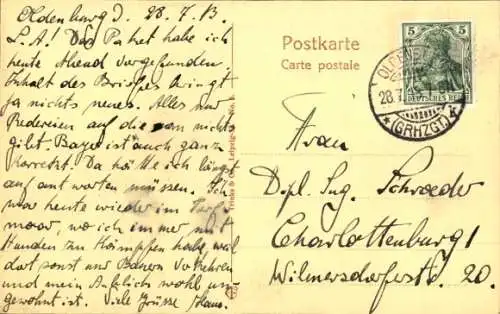 Oldenburg d. 28.7.13.
L. A! Das Paket habe ich
heute Abend vorgefunden.
Inhalt des Briefes bringt
ja nichts neues. Alles nur
Redereien auf die man nichts
gibt. ist auch ganz
korrekt. Da hätte ich längst
auf antworten müssen. Ich
war heute wieder im Torf-
moor, wo ich immer mit
Hunden zu kämpfen habe, weil
dort sonst nur Bauern verkehren
und mein Anblick wohl un-
gewohnt ist. Viele Grüsse Hans.
Postkarte
Carte postale
5
DEUTSCHES REICH
OLDENBURG
28.7.13
*(GRHZGT)*
Frau
Dipl. Ing. Schroeder
Charlottenburg 1
Wilmersdorferstr. 20.